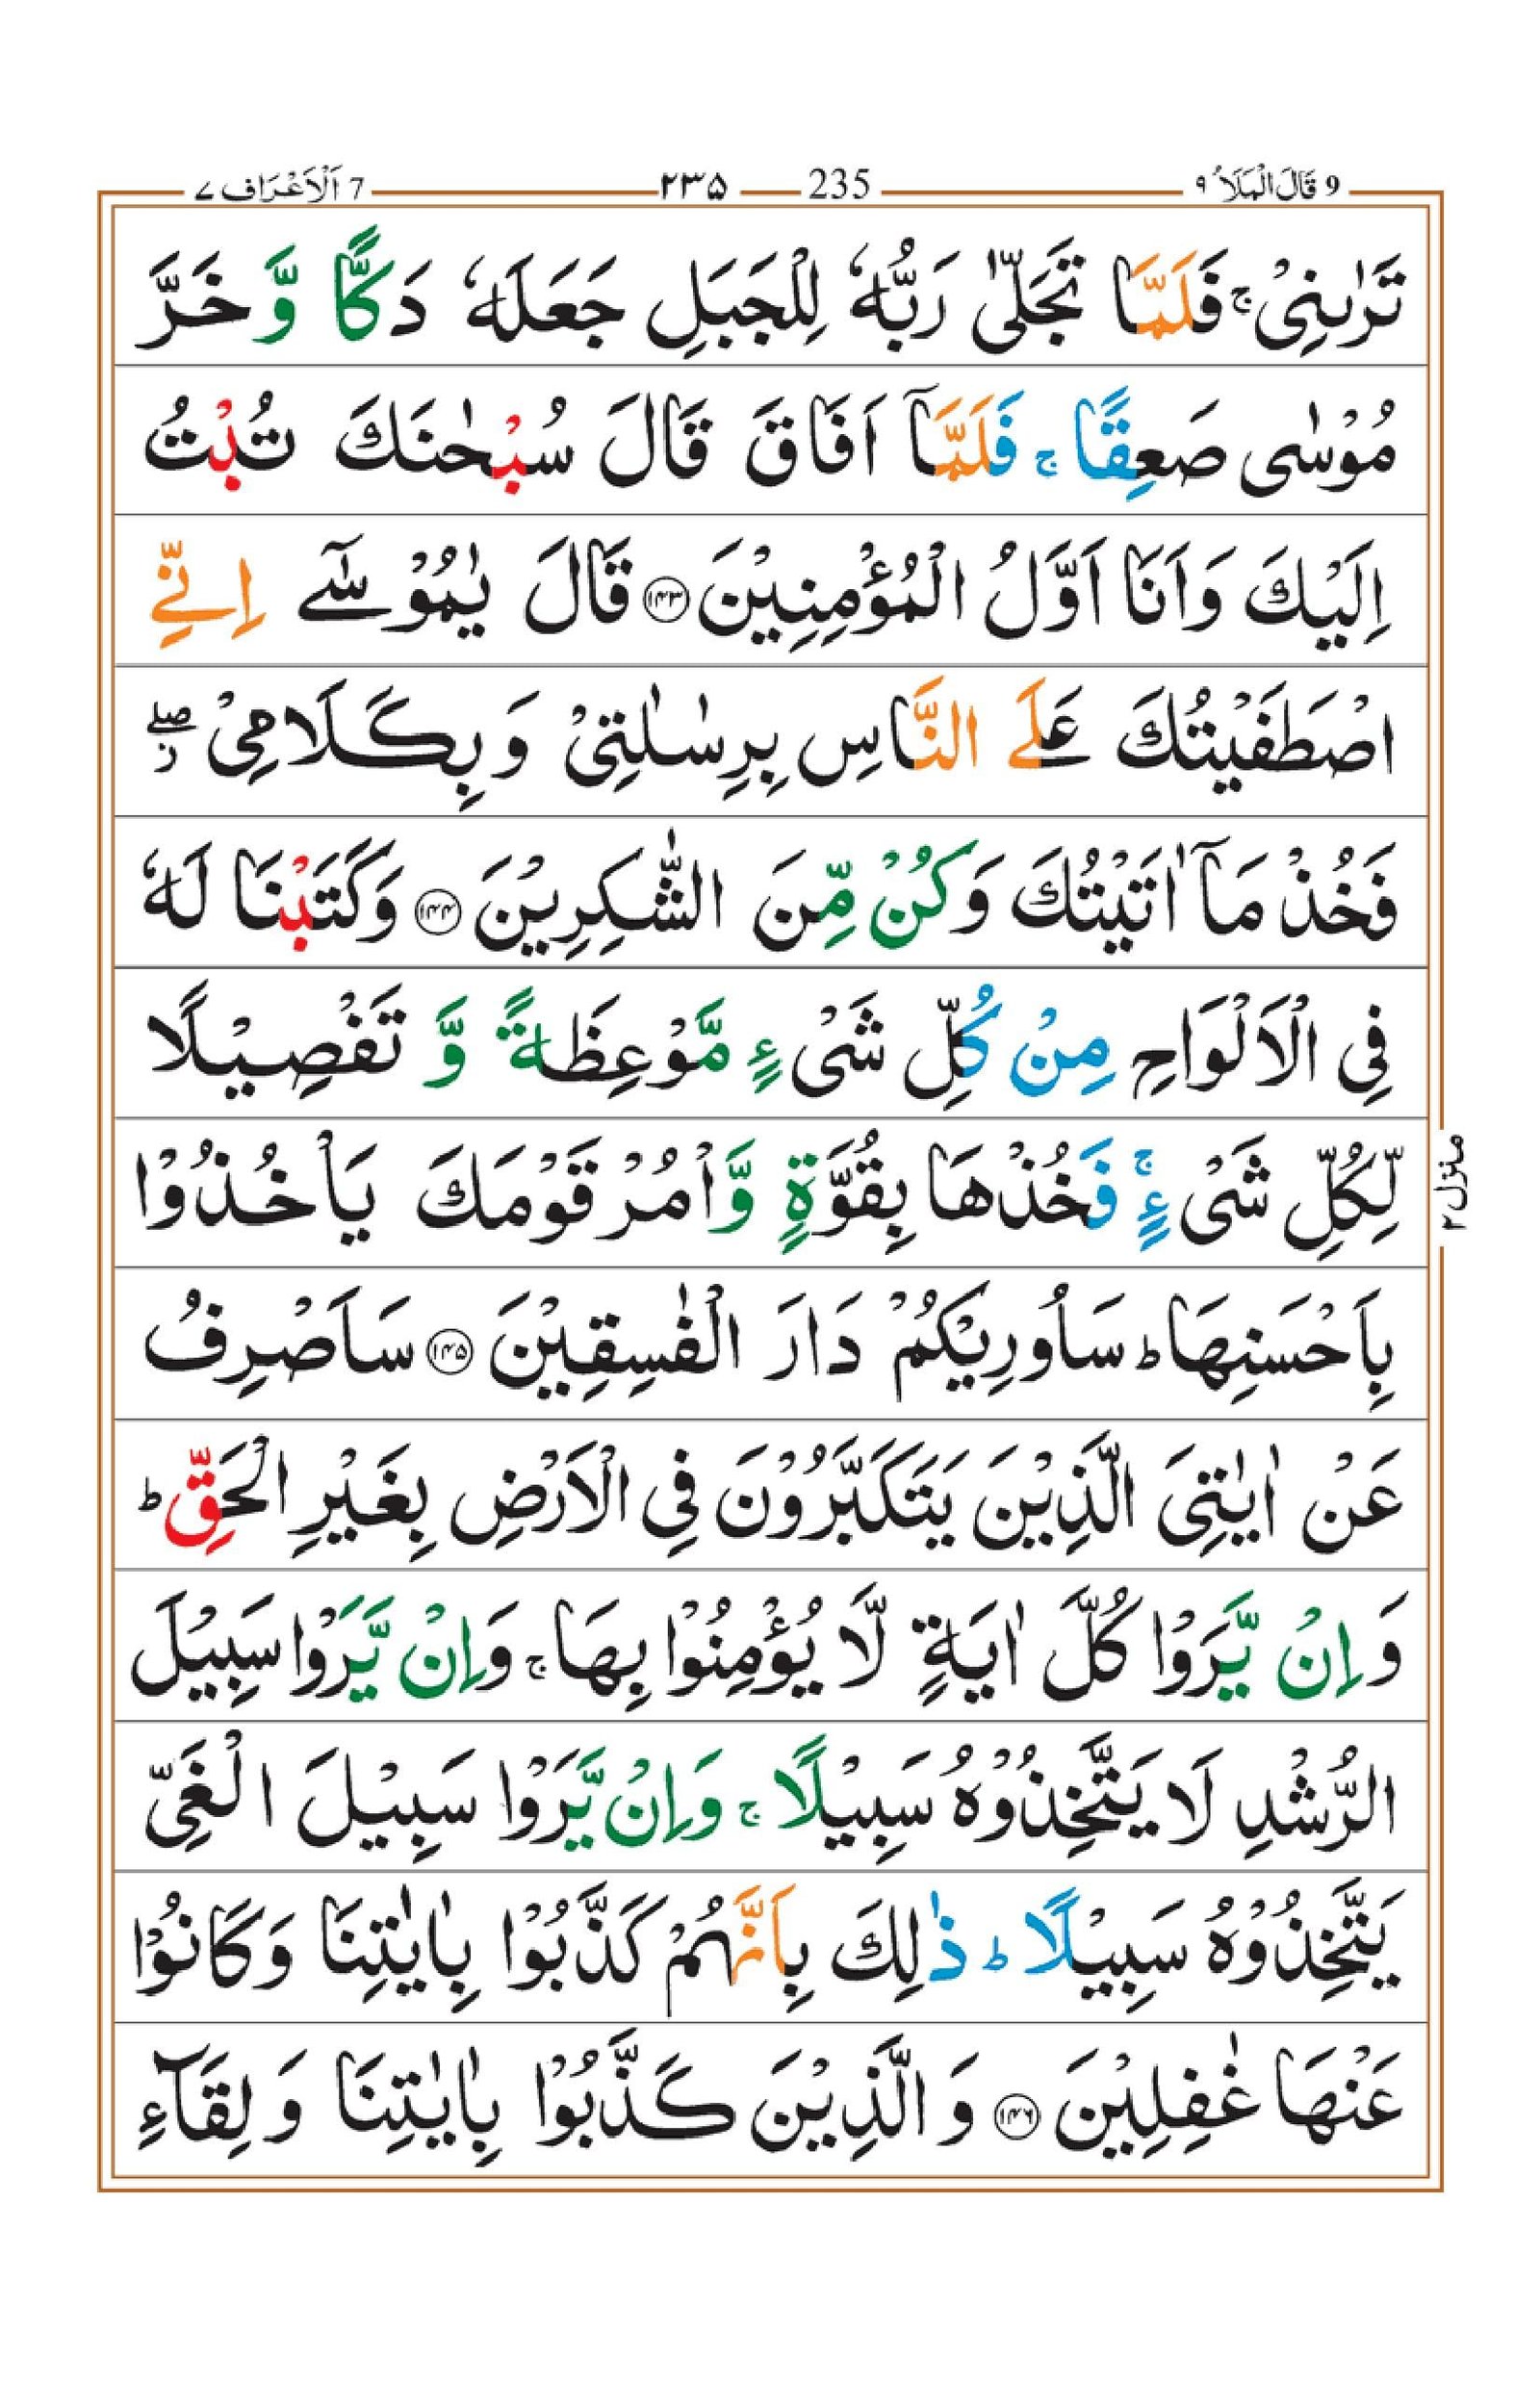 9 قَالَ الْمَلَاُ ۹ 235 ۲۳۵ 7 اَلْاَعْرَاف ۷
تَرٰىنِیْ ۚ فَلَمَّا تَجَلّٰی رَبُّهٗ لِلْجَبَلِ جَعَلَهٗ دَكًّا وَّ خَرَّ
مُوْسٰی صَعِقًا ۚ فَلَمَّاۤ اَفَاقَ قَالَ سُبْحٰنَكَ تُبْتُ
اِلَیْكَ وَاَنَا اَوَّلُ الْمُؤْمِنِیْنَ ﴿۱۴۳﴾ قَالَ یٰمُوْسٰۤے اِنِّے
اصْطَفَیْتُكَ عَلَے النَّاسِ بِرِسٰلٰتِیْ وَ بِكَلَامِیْ ۖز
فَخُذْ مَاۤ اٰتَیْتُكَ وَكُنْ مِّنَ الشّٰكِرِیْنَ ﴿۱۴۴﴾ وَكَتَبْنَا لَهٗ
فِی الْاَلْوَاحِ مِنْ كُلِّ شَیْءٍ مَّوْعِظَةً وَّ تَفْصِیْلًا
لِّكُلِّ شَیْءٍ ۚ فَخُذْهَا بِقُوَّةٍ وَّاْمُرْ قَوْمَكَ یَاْخُذُوْا
بِاَحْسَنِهَا ؕ سَاُورِیْكُمْ دَارَ الْفٰسِقِیْنَ ﴿۱۴۵﴾ سَاَصْرِفُ
عَنْ اٰیٰتِیَ الَّذِیْنَ یَتَكَبَّرُوْنَ فِی الْاَرْضِ بِغَیْرِ الْحَقِّ ؕ
وَ اِنْ یَّرَوْا كُلَّ اٰیَةٍ لَّا یُؤْمِنُوْا بِهَا ۚ وَاِنْ یَّرَوْا سَبِیْلَ
الرُّشْدِ لَا یَتَّخِذُوْهُ سَبِیْلًا ۚ وَاِنْ یَّرَوْا سَبِیْلَ الْغَیِّ
یَتَّخِذُوْهُ سَبِیْلًا ؕ ذٰلِكَ بِاَنَّهُمْ كَذَّبُوْا بِاٰیٰتِنَا وَكَانُوْا
عَنْهَا غٰفِلِیْنَ ﴿۱۴۶﴾ وَ الَّذِیْنَ كَذَّبُوْا بِاٰیٰتِنَا وَ لِقَآءِ
منزل ۲